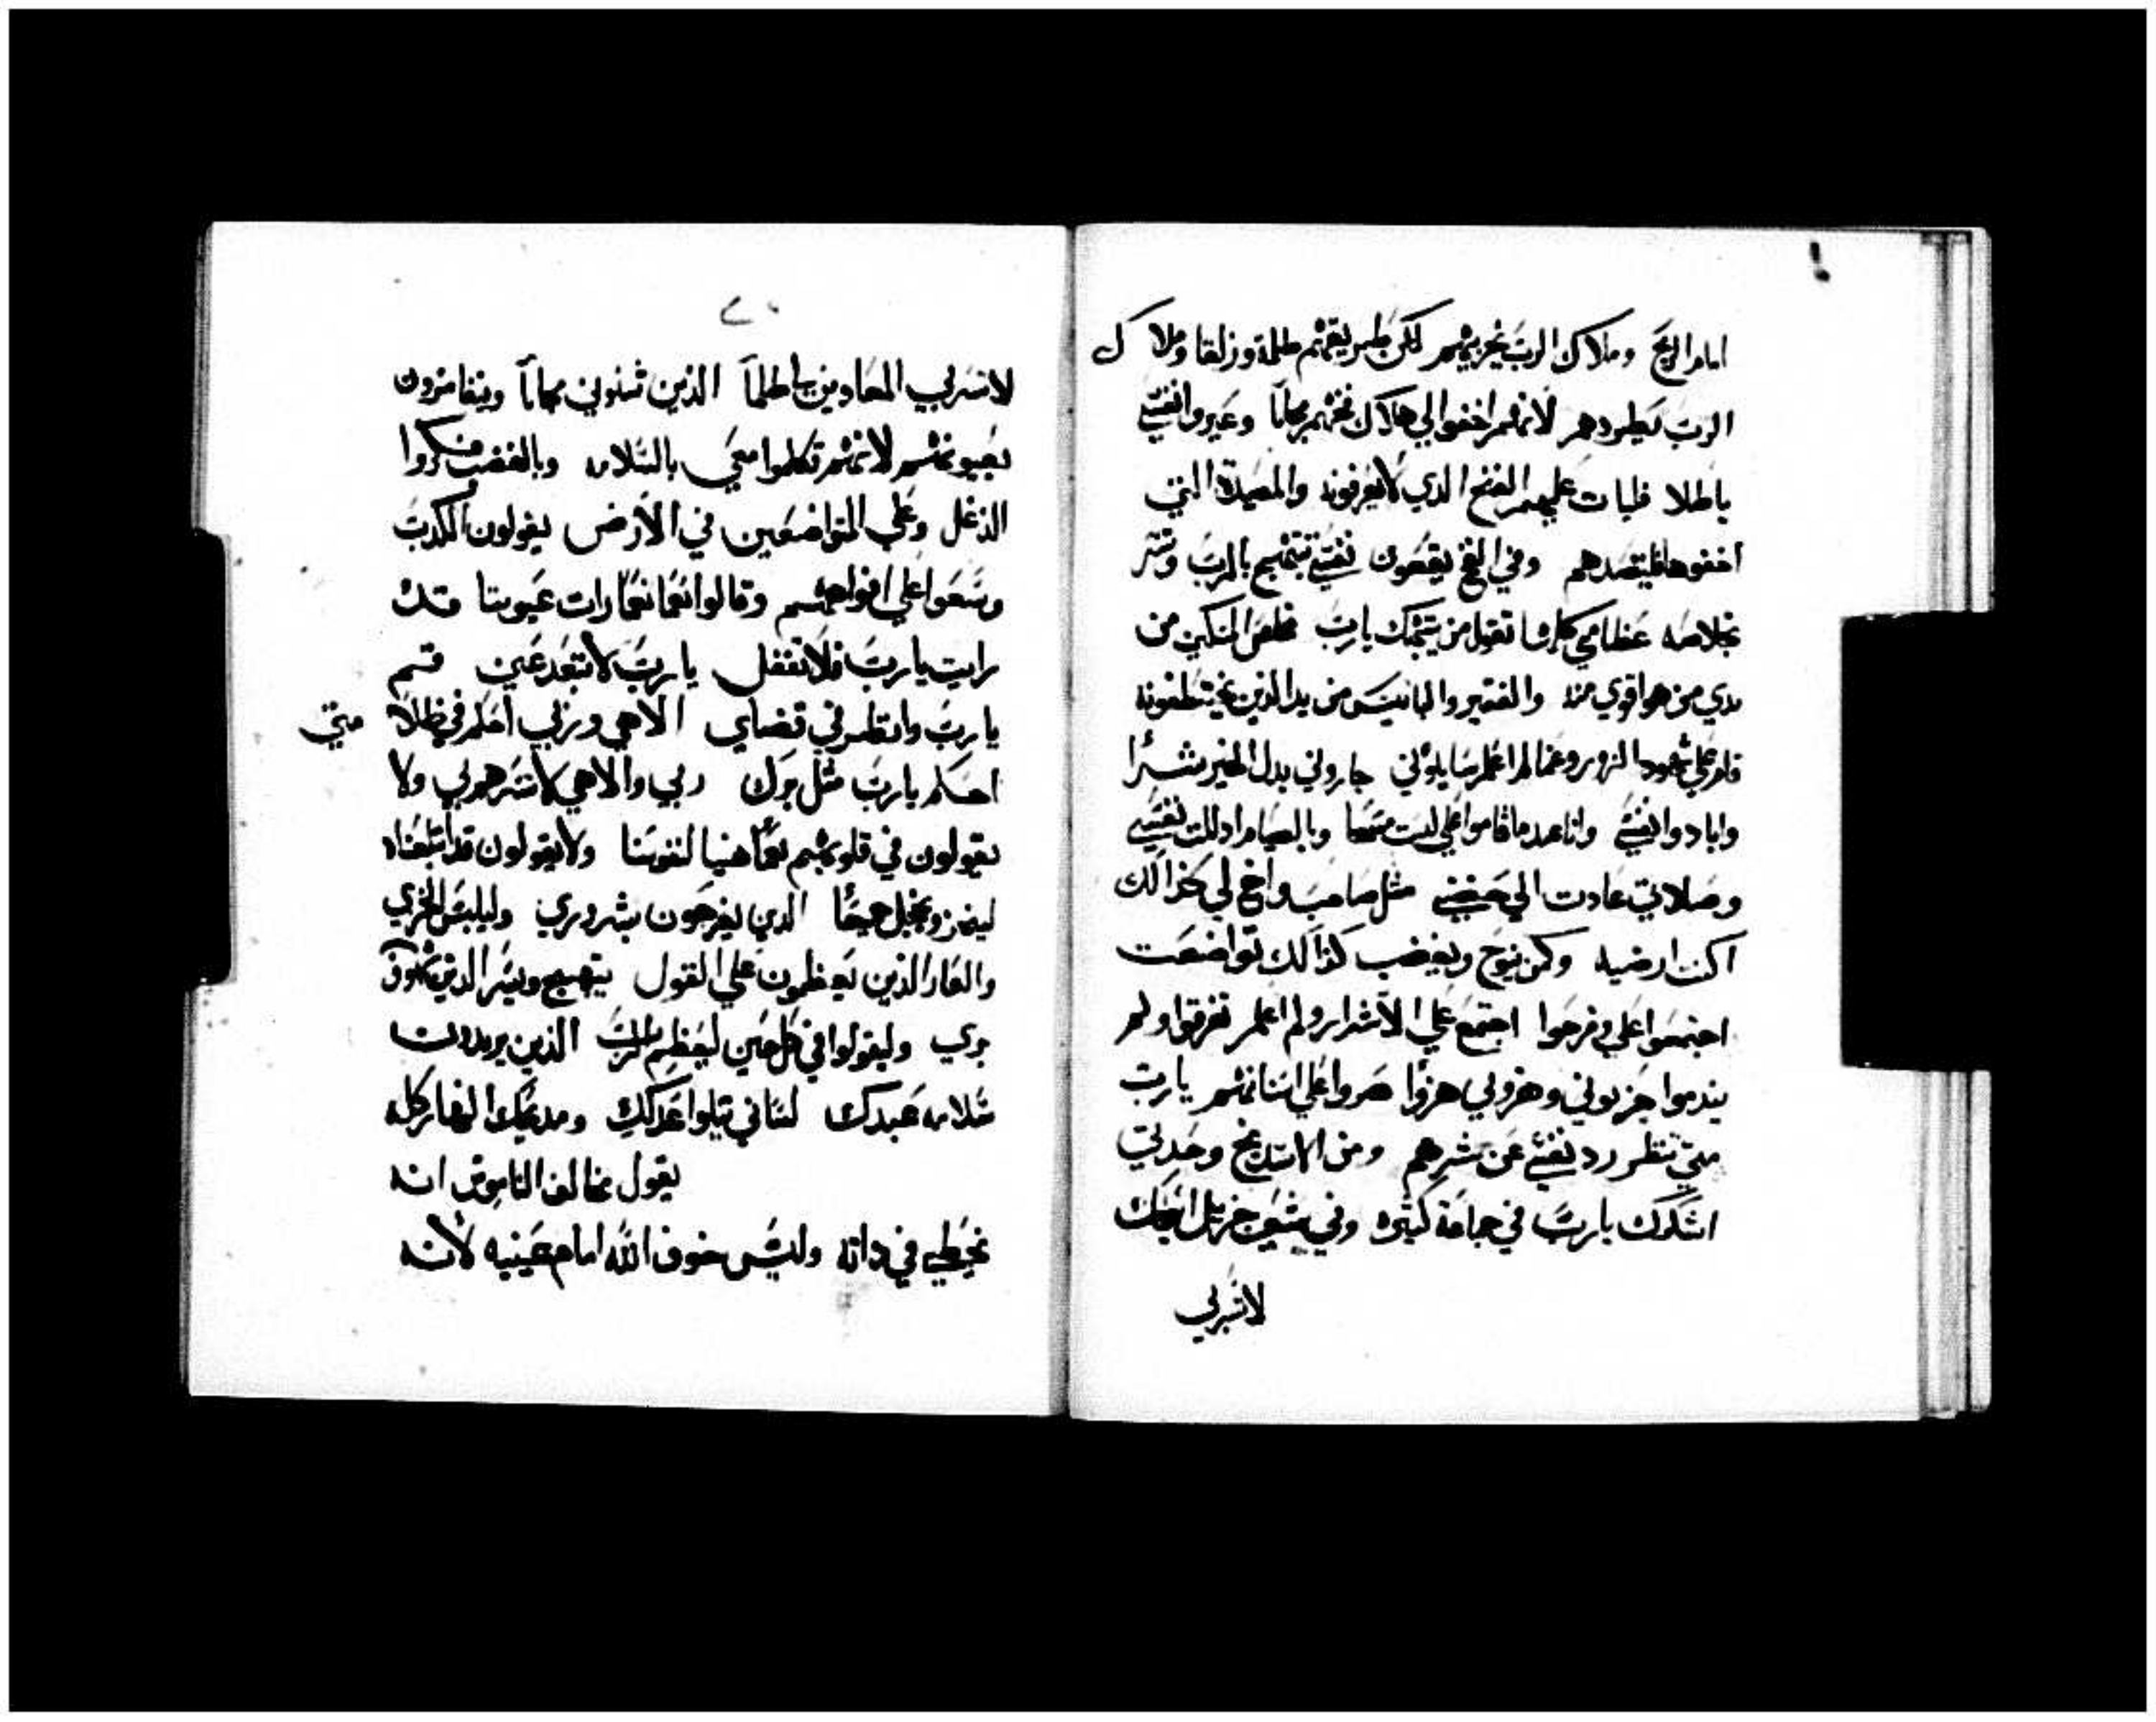 امام الريح وملاك الرب يخزيهم لكن طريقهم ظلمة وزلقا وملاك
الرب يطردهم لانهم اخفوا لي هلاك فخهم مجانا وعيروا نفسي
باطلا فليات عليهم الفخ الدي لا يعرفونه والمصيدة التي
اخفوها فليتصدهم وفي الفخ يقعون نفسي تبتهج بالرب وتسر
بخلاصه عظامي كلها تقول من يشبهك يارب مخلص المسكين من
يدي من هو اقوي منه والفقير والبائيس من يد الذين يختطفونه
قام علي شهود الزور وعما لم اعلم سايلوني جازوني بدل الخير شرا
وابادوا نفسي وانا عندما قاموا علي لبست مسحا وبالصيام ادللت نفسي
وصلاتي عادت الي حضني مثل صاحب واخ لي كذالك
اكنت ارضيه وكمن ينوح ويغضب كذالك تواضعت
اجتمعوا علي وفرحوا اجتمع علي الاشرار ولم اعلم تفرقوا ولم
يندموا جربوني وهزوا لي هزوا صروا علي اسنانهم يارب
متي تنظر رد نفسي عن شرهم ومن الاسد وحدتي
اشكرك يارب في جماعة كثيره وفي شعب جزيل اسبحك
لا تسر بي
٢٠
لا تسر بي المعادين لي ظلما الذين شنوني مجانا ويتغامزون
بعيونهم لانهم تكلموا معي بالسلام وبالغضب فكروا
الدغل وعلي المتواضعين في الارض يقولون الكدب
وسعوا علي افواههم وقالوا نعما نعما رات عيوننا قد
رايت يارب فلا تغفل يارب لا تبعد عني قم
يارب وانظر في قضاي الاهي وربي احكم في ظلامتي
احكم يارب مثل برك ربي والاهي لا تسرهم بي ولا
يقولون في قلوبهم نعما هنيا لنفوسنا ولا يقولون قد ابتلعناه
ليخز ويخجل جميعا الدين يفرحون بشروري وليلبس الخزي
والعار الذين يعظمون علي القول يبتهج ويسر الدين يهوون
بري وليقولوا في كل حين ليعظم الرب الذين يريدون
سلام عبدك لساني يتلوا عدلك ومديحك النهار كله
يقول مخالف الناموس انه
يخطي في داته وليس خوف الله امام عينيه لانه